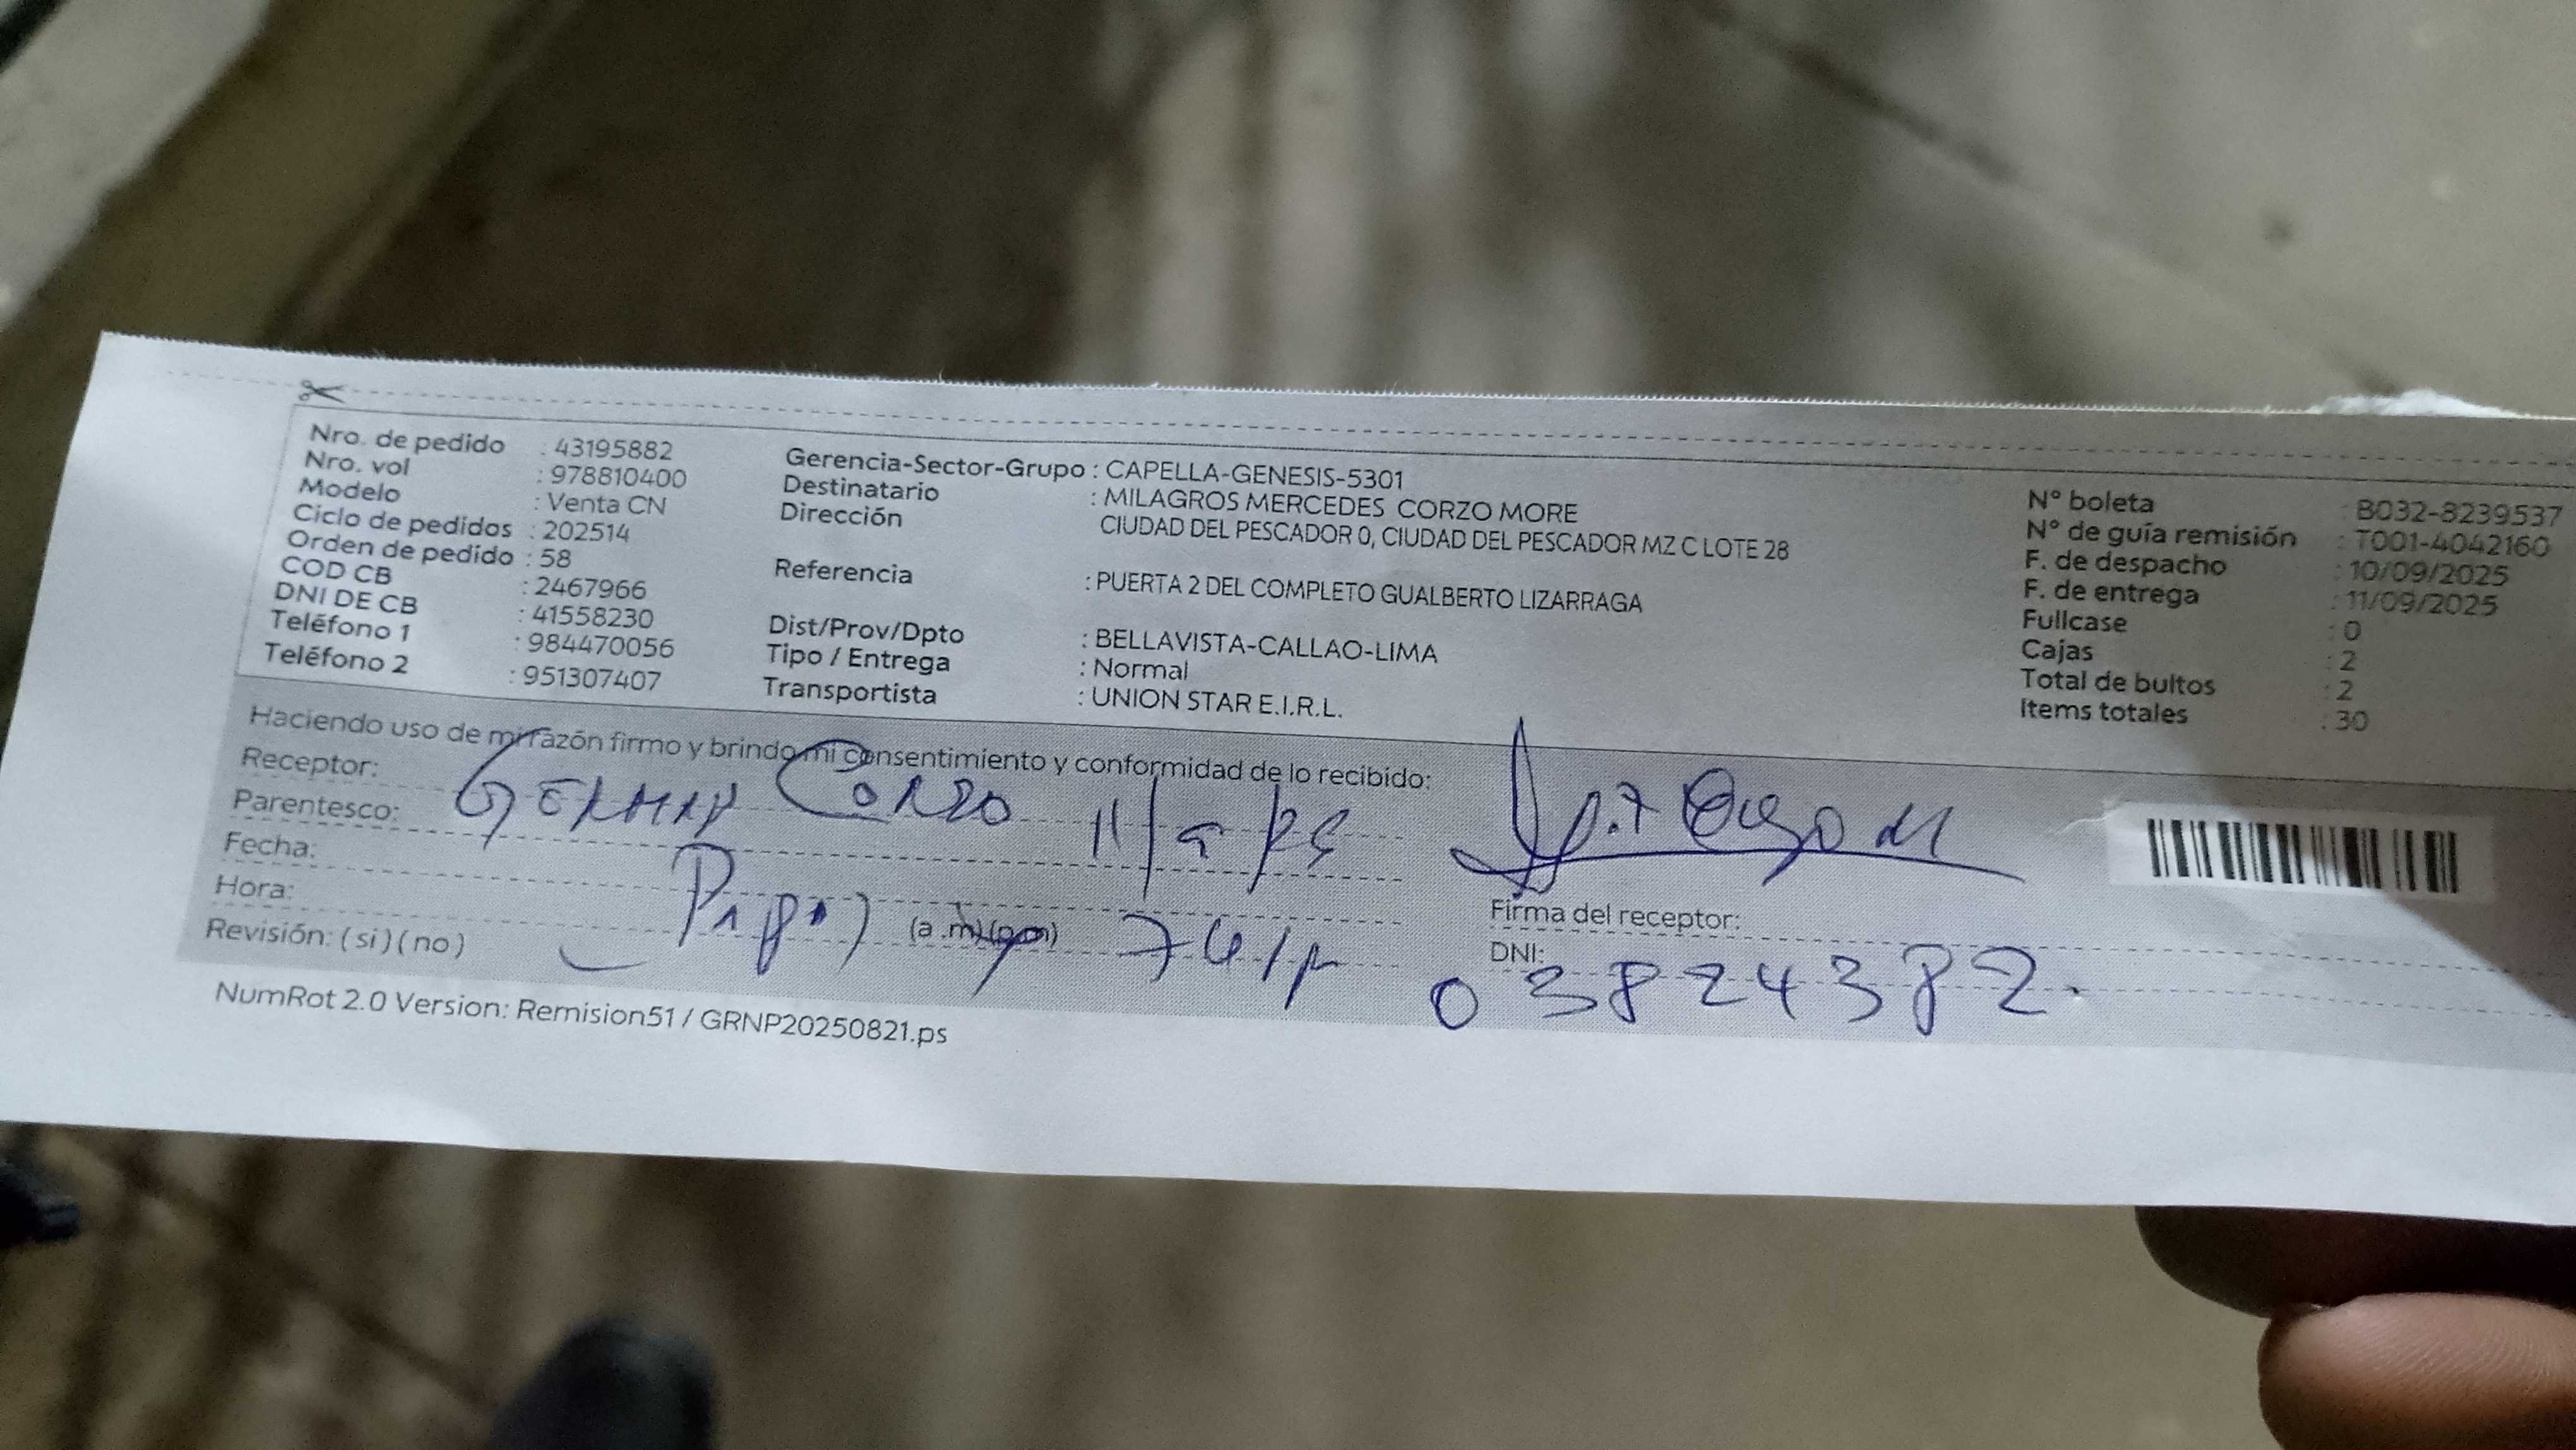 Nro. de pedido : 43195882
Nro. vol : 978810400
Modelo : Venta CN
Ciclo de pedidos : 202514
Orden de pedido : 58
COD CB : 2467966
DNI DE CB : 41558230
Teléfono 1 : 984470056
Teléfono 2 : 951307407
Gerencia-Sector-Grupo : CAPELLA-GENESIS-5301
Destinatario : MILAGROS MERCEDES CORZO MORE
Dirección CIUDAD DEL PESCADOR 0, CIUDAD DEL PESCADOR MZ C LOTE 28
Referencia : PUERTA 2 DEL COMPLETO GUALBERTO LIZARRAGA
Dist/Prov/Dpto : BELLAVISTA-CALLAO-LIMA
Tipo / Entrega : Normal
Transportista : UNION STAR E.I.R.L.
N° boleta : B032-8239537
N° de guía remisión : T001-4042160
F. de despacho : 10/09/2025
F. de entrega : 11/09/2025
Fullcase : 0
Cajas : 2
Total de bultos : 2
Items totales : 30
Haciendo uso de mi razón firmo y brindo mi consentimiento y conformidad de lo recibido:
Receptor: German Corzo
Parentesco:
Fecha:
Hora: (a.m) (p.m)
Revisión: (si) (no)
Firma del receptor:
DNI: 03824382.
NumRot 2.0 Version: Remision51 / GRNP20250821.ps